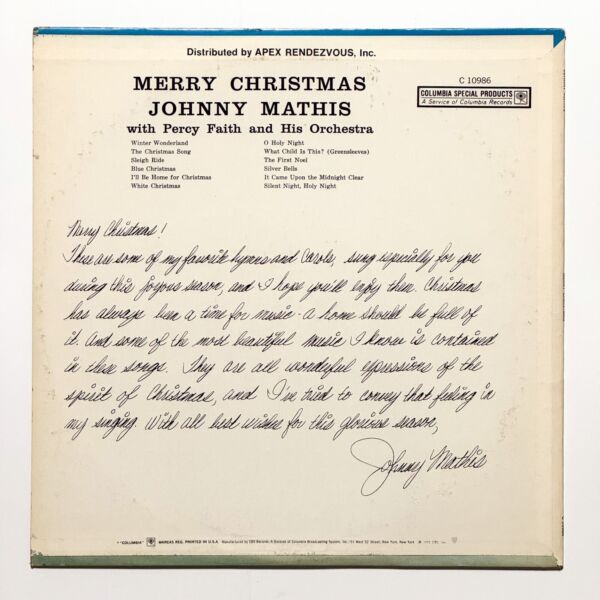 Distributed by APEX RENDEZVOUS, Inc.
MERRY CHRISTMAS
JOHNNY MATHIS
with Percy Faith and His Orchestra
C 10986
COLUMBIA SPECIAL PRODUCTS
A Service of Columbia Records
Winter Wonderland
The Christmas Song
Sleigh Ride
Blue Christmas
I'll Be Home for Christmas
White Christmas
O Holy Night
What Child Is This? (Greensleeves)
The First Noel
Silver Bells
It Came Upon the Midnight Clear
Silent Night, Holy Night
Merry Christmas!
These are some of my favorite hymns and carols, sung especially for you
during this joyous season, and I hope you'll enjoy them. Christmas
has always been a time for music - a home should be full of
it. And some of the most beautiful music I know is contained
in these songs. They are all wonderful expressions of the
spirit of Christmas, and I've tried to convey that feeling in
my singing. With all best wishes for this glorious season,
Johnny Mathis
"COLUMBIA" MARCAS REG. PRINTED IN U.S.A. Manufactured by CBS Records/A Division of Columbia Broadcasting System, Inc./51 West 52 Street, New York, New York